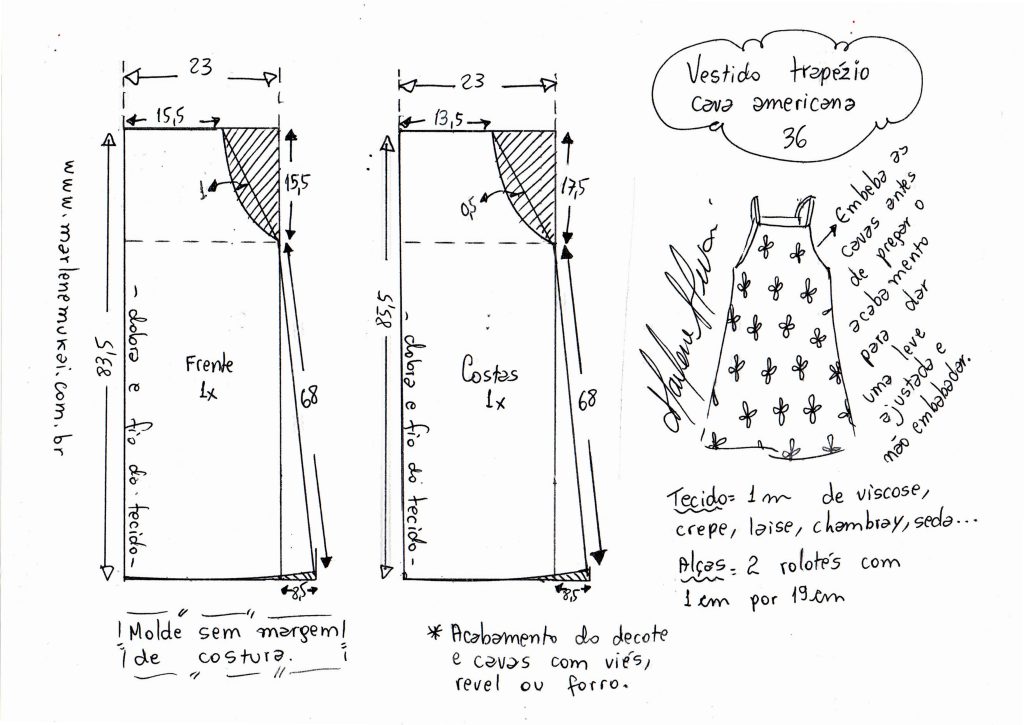 Vestido trapézio
cava americana
36
23
15,5
15,5
1
83,5
- dobra e fio do tecido -
Frente
1x
68
8,5
www.marlenemukai.com.br
23
13,5
17,5
0,5
85,5
- dobra e fio do tecido -
Costas
1x
68
8,5
Marlene Mukai
Embeba as
cavas antes
de prepar o
acabamento
para dar
uma leve
ajustada e
não embabadar.
Tecido= 1m de viscose,
crepe, laise, chambray, seda...
Alças= 2 rolotés com
1cm por 19cm
! Molde sem margem !
! de costura. !
* Acabamento do decote
e cavas com viés,
revel ou forro.